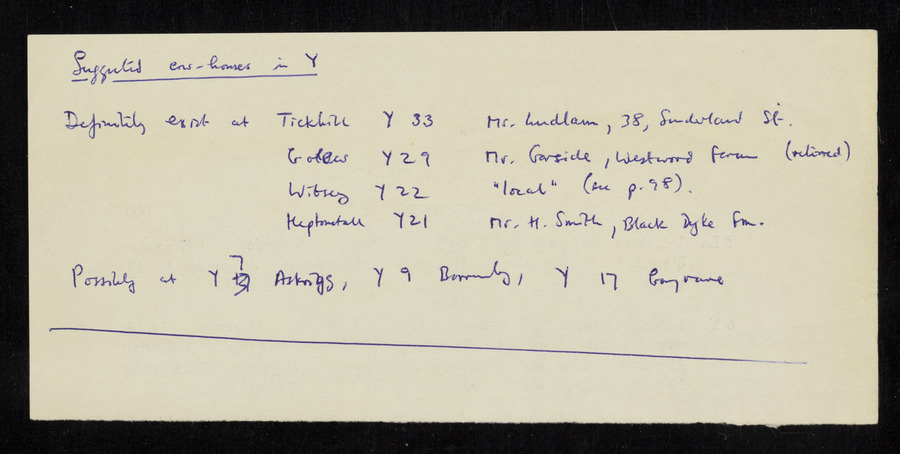 Suggested cow-houses in Y
Definitely exist at Tickhill Y 33 Mr. Ludlam, 38, Sunderland St.
Golcar Y 29 Mr. Garside, Westwood Farm (retired)
Wibsey Y 22 "local" (see p.98).
Heptonstall Y21 Mr. H. Smith, Black Dyke Fm.
Possibly at Y 7 Askrigg, Y 9 Borrowby, Y 17 Gargrave